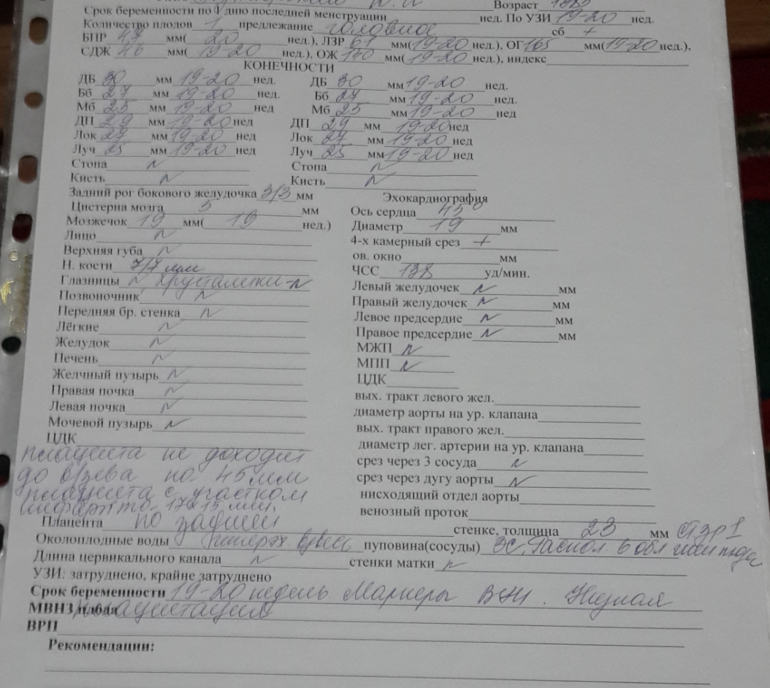 Возраст
Срок беременности по 1 дню последней менструации нед. По УЗИ 19-20 нед.
Количество плодов 1 предлежание головное сб +
БПР 47 мм( 20 нед.), ЛЗР 61 мм(19-20 нед.), ОГ 165 мм(19-20 нед.),
СДЖ 46 мм( 19-20 нед.), ОЖ 140 мм( 19-20 нед.), индекс
КОНЕЧНОСТИ
ДБ 30 мм 19-20 нед. ДБ 30 мм 19-20 нед.
Бб 27 мм 19-20 нед. Бб 27 мм 19-20 нед.
Мб 25 мм 19-20 нед Мб 25 мм 19-20 нед
ДП 29 мм 19-20 нед ДП 29 мм 19-20 нед
Лок 27 мм 19-20 нед Лок 27 мм 19-20 нед
Луч 25 мм 19-20 нед Луч 25 мм 19-20 нед
Стопа N Стопа N
Кисть N Кисть N
Задний рог бокового желудочка 3/3 мм
Цистерна мозга 5 мм
Мозжечок 19 мм( 19 нед.)
Лицо N
Верхняя губа N
Н. кости 7/7 мм
Глазницы N, хрусталики-N
Позвоночник N
Передняя бр. стенка N
Лёгкие N
Желудок N
Печень N
Желчный пузырь N
Правая почка N
Левая почка N
Мочевой пузырь N
ЦДК
плацента не доходит
до в/зева по 45 мм
плацента с участком
инфаркта 17x15 мм.
Эхокардиография
Ось сердца 45°
Диаметр 19 мм
4-х камерный срез +
ов. окно мм
ЧСС 138 уд/мин.
Левый желудочек N мм
Правый желудочек N мм
Левое предсердие N мм
Правое предсердие N мм
МЖП N
МПП N
ЦДК
вых. тракт левого жел.
диаметр аорты на ур. клапана
вых. тракт правого жел.
диаметр лег. артерии на ур. клапана
срез через 3 сосуда N
срез через дугу аорты N
нисходящий отдел аорты
венозный проток
Плацента по задней стенке, толщина 23 мм ст.зр 1
Околоплодные воды пуповина(сосуды) 3С, распол в обл
Длина цервикального канала N стенки матки N
УЗИ: затруднено, крайне затруднено
Срок беременности 19-20 недель Маркеры ВЖИ. Низкая
МВНЗ плацентация
ВРП
Рекомендации: